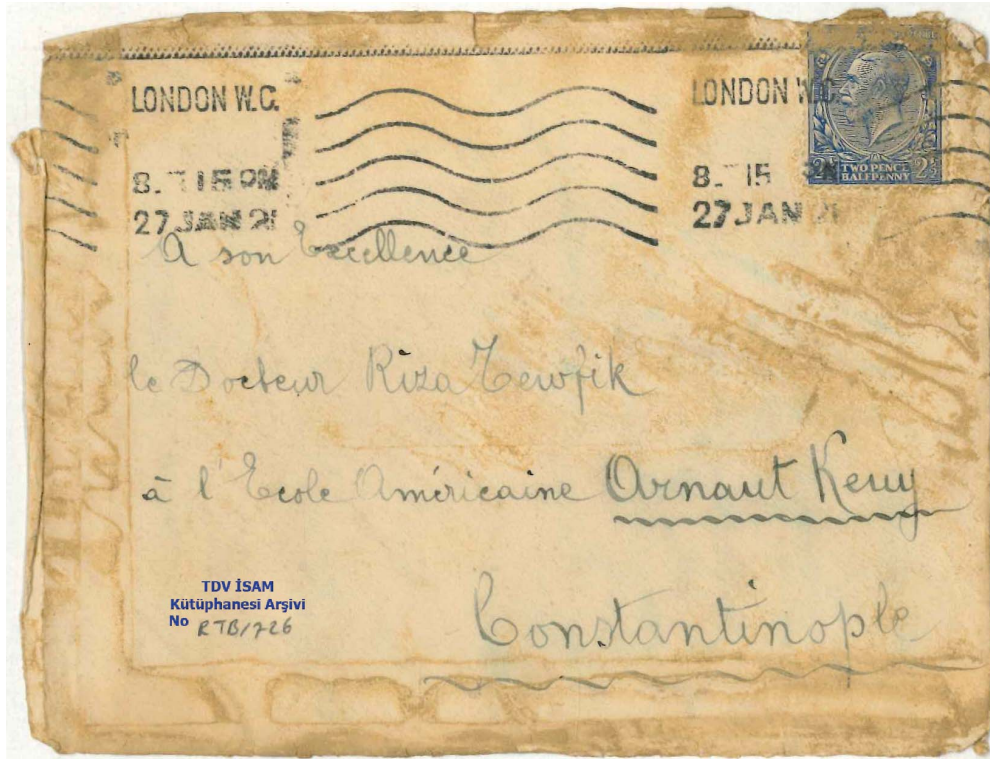 LONDON W.C.
8. 15 PM
27 JAN 21
LONDON W.C.
8. 15 PM
27 JAN 21
TWO PENCE
HALFPENNY
2½
2½
A son Excellence
le Docteur Riza Tewfik
à l'Ecole Américaine Arnaut Keuy
Constantinople
TDV İSAM
Kütüphanesi Arşivi
No RTB/726